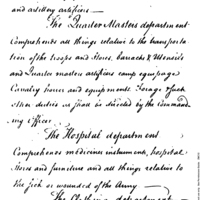 and artillery artificers —
The Quarter Masters department
Comprehends all things relative to the transporta
tion of the troops and stores, barracks & Utensils
and Quarter masters artificers camp equipage
Cavalry horses and equipments Forage & such
other duties as shall be directed by the Command
ing Officer —
The Hospital department
Comprehends medicine instruments, hospital
Stores and furniture and all things relative to
the sick or wounded of the Army —
The Clothing department